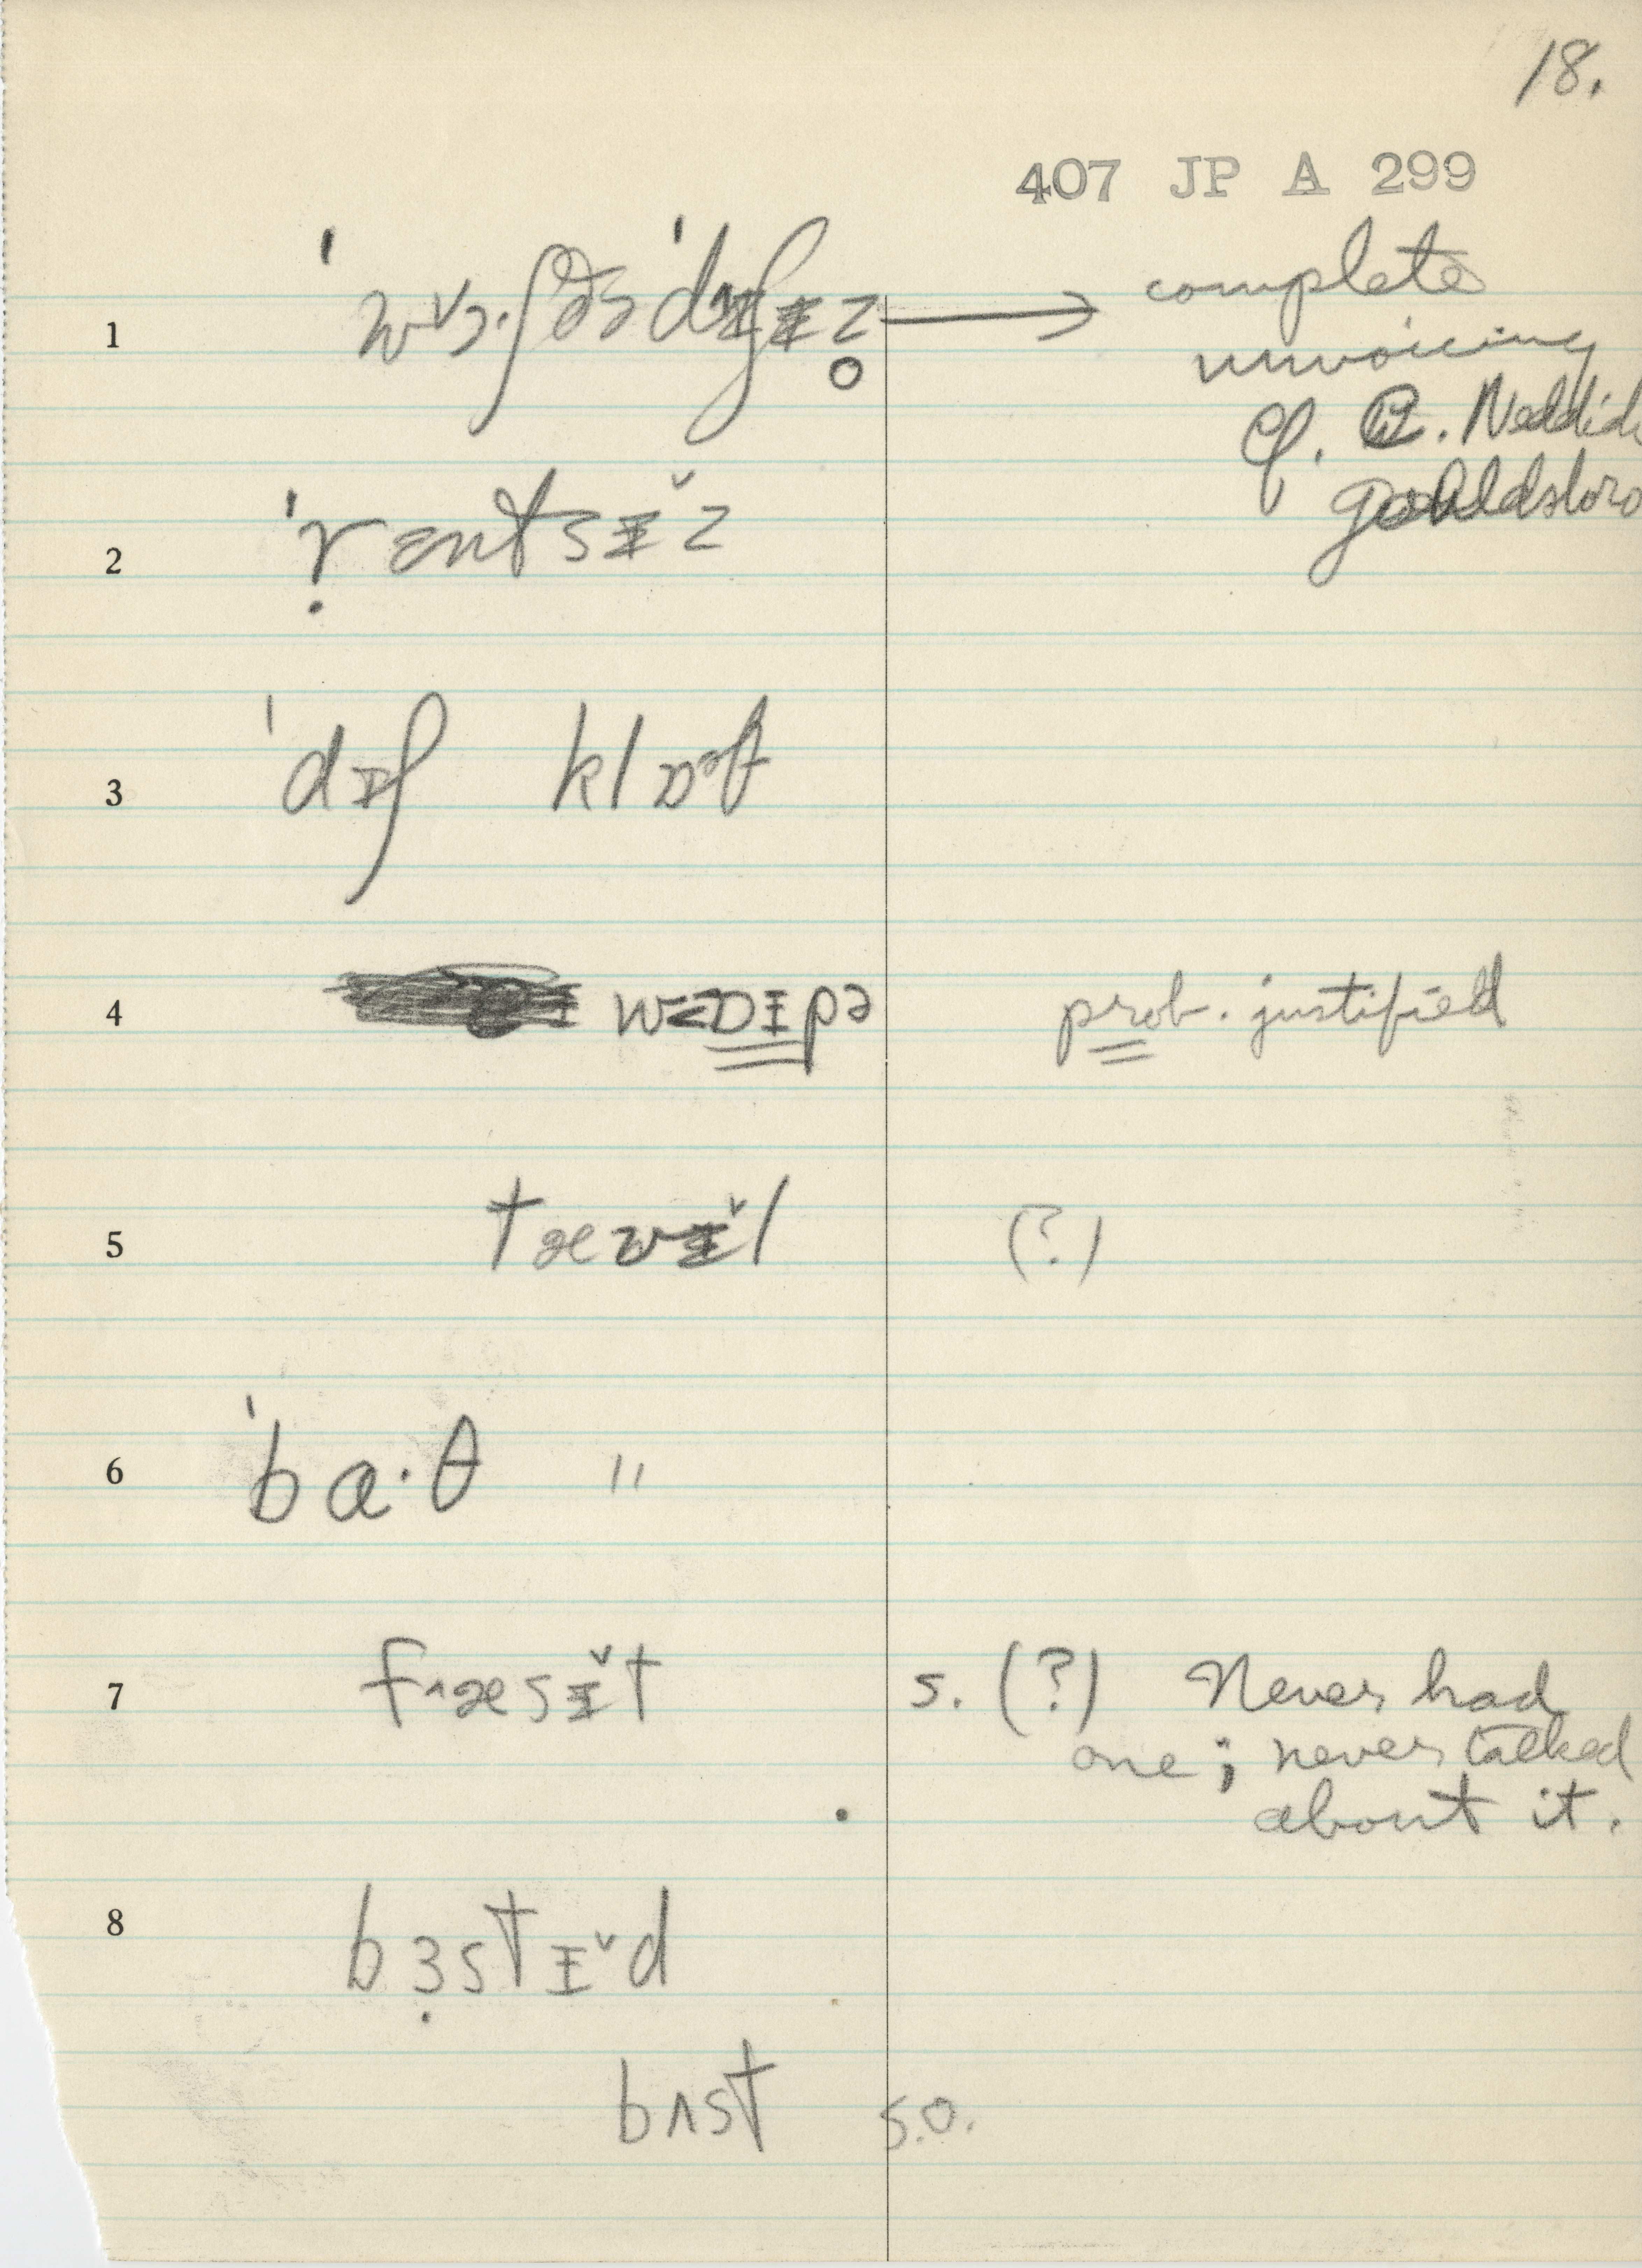 18.
407 JP A 299
1 complete
unvoicing
cf. C. Neddick
Gouldsboro
2 ˈṛɛntsɪ̆z
3 ˈdɪʃ klɒəθ
4 prob. justified
5 tæwɪ̆l (?)
6 ˈba·θ "
7 fʌæsɪ̆t s. (?) Never had
one; never talked
about it.
8 bɜ̣stɪ̆d
bʌst s.o.